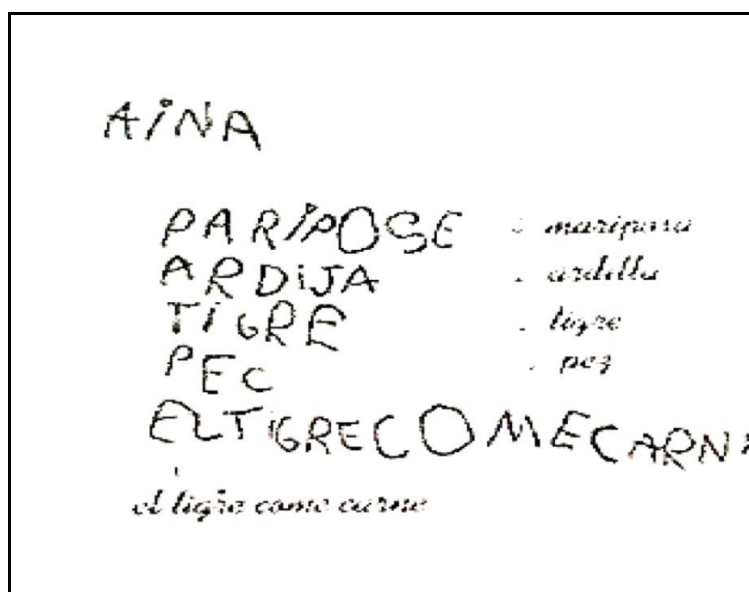 AiNA
PARiPOSE : mariposa
ARDiJA . ardilla
TiGRE . tigre
PEC . pez
ELTiGRECOMECARN
el tigre come carne